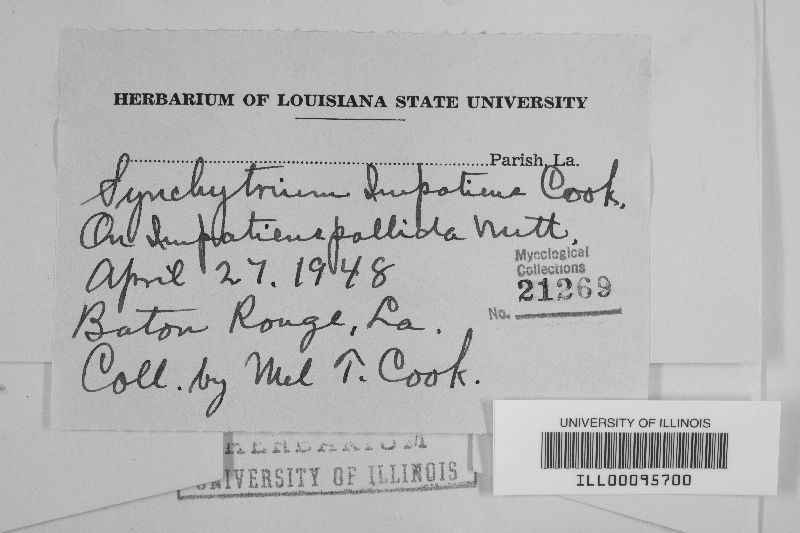 HERBARIUM OF LOUISIANA STATE UNIVERSITY
Parish, La.
Synchytrium Impatiens Cook.
On Impatiens pallida Nutt.
April 27. 1948
Baton Rouge, La.
Coll. by Mel T. Cook.
Mycological
Collections
21269
No.
HERBARIUM
UNIVERSITY OF ILLINOIS
UNIVERSITY OF ILLINOIS
ILL00095700